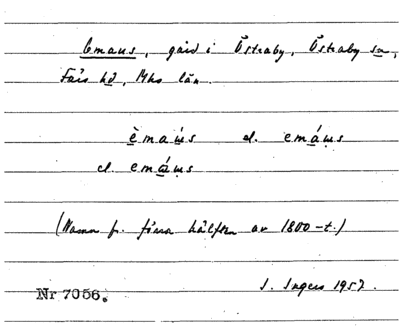 Emaus, gård i Östraby, Östraby sn,
Färs hd, Mhs län.
èmaús el. emáus
el. emáus
(Namn fr. förra hälften av 1800-t.)
Nr 7056. I. Ingers 1957.